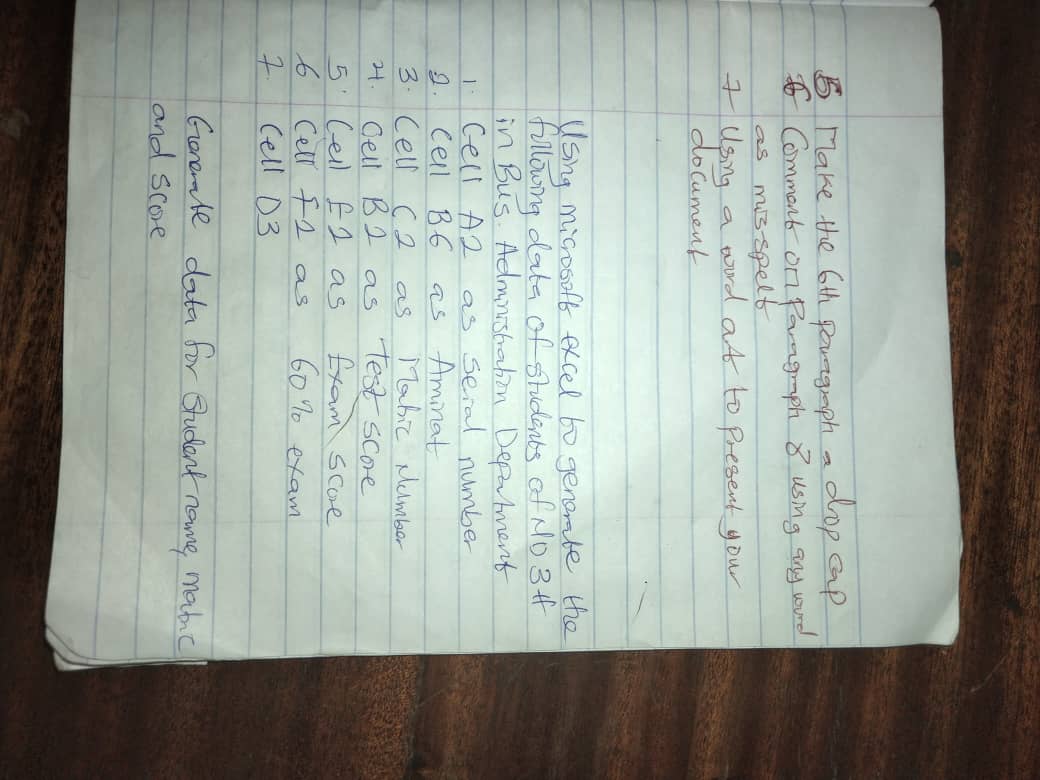 5 Make the 6th paragraph a drop cap
6 Comment on Paragraph 8 using any word
as mis-spelt
7 Using a word art to present your
document
Using microsoft excel to generate the
following data of students of ND 3
in Bus. Administration Department
1. Cell A2 as Serial number
2. Cell B6 as Aminat
3. Cell C2 as Matric Number
4. Cell B2 as Test score
5. Cell E2 as Exam score
6 Cell F2 as 60% exam
7. Cell D3
Generate data for student name, matric
and score